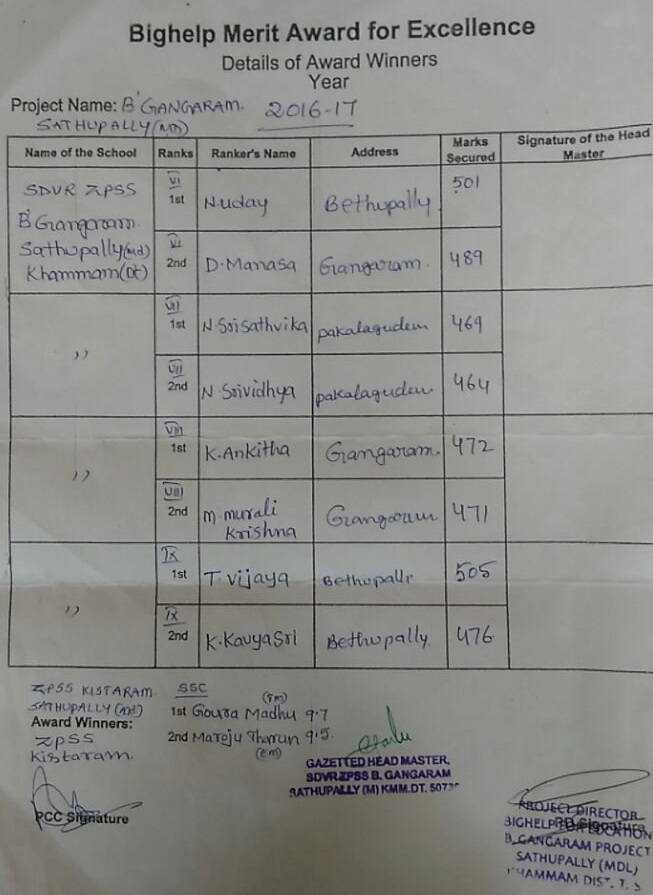 Bighelp Merit Award for Excellence
Details of Award Winners
Year
Project Name: B'GANGARAM. 2016-17
SATHUPALLY(MD)
Name of the School Ranks Ranker's Name Address Marks Secured Signature of the Head Master
SDVR ZPSS
B'Gangaram.
Sathupally(Md)
Khammam(Dt)
VI 1st N.uday Bethupally 501
VI 2nd D.Manasa Gangaram. 489
,, VII 1st N.Srisathvika pakalagudem 469
VII 2nd N.Srividhya pakalagudem 464
,, VIII 1st K.Ankitha Gangaram. 472
VIII 2nd M.murali Krishna Gangaram 471
,, IX 1st T.vijaya Bethupalli 505
IX 2nd K.KavyaSri Bethupally. 476
ZPSS KISTARAM. SSC
SATHUPALLY(Md) 1st Goura Madhu 9.7 (TM)
Award Winners: 2nd Mareju Tharun 9.5. (EM)
ZPSS
Kistaram.
GAZETTED HEAD MASTER,
SDVRZPSS B. GANGARAM
SATHUPALLY (M) KMM.DT.
PCC Signature
PROJECT DIRECTOR
PD Signature
B.GANGARAM PROJECT
SATHUPALLY (MDL)
KHAMMAM DIST. T.S